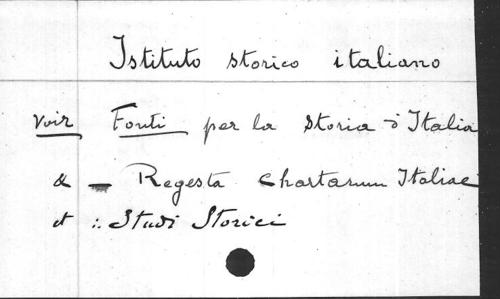 Istituto storico italiano
voir Fonti per la storia d'Italia
& — Regesta Chartarum Italiae
et : Studi Storici